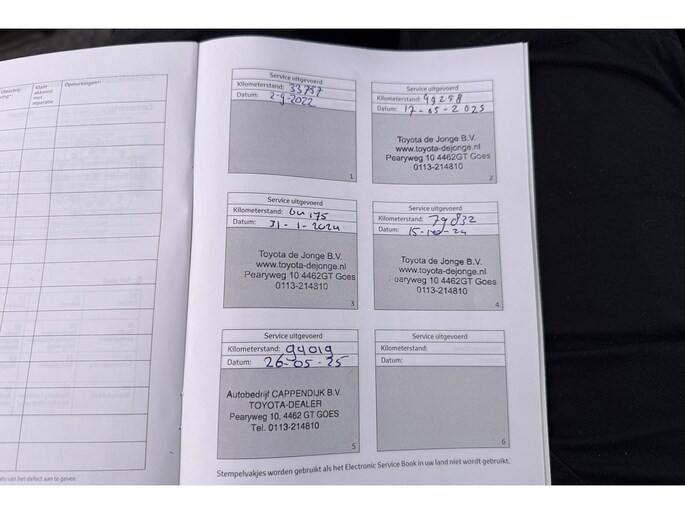 Klant
akkoord
met
reparatie
Opmerkingen
Service uitgevoerd
Kilometerstand: 33757
Datum: 2-9-2022
1
Service uitgevoerd
Kilometerstand: 49258
Datum: 17-05-2023
Toyota de Jonge B.V.
www.toyota-dejonge.nl
Pearyweg 10 4462GT Goes
0113-214810
2
Service uitgevoerd
Kilometerstand: 64175
Datum: 31-1-2024
Toyota de Jonge B.V.
www.toyota-dejonge.nl
Pearyweg 10 4462GT Goes
0113-214810
3
Service uitgevoerd
Kilometerstand: 79832
Datum: 15-10-24
Toyota de Jonge B.V.
www.toyota-dejonge.nl
Pearyweg 10 4462GT Goes
0113-214810
4
Service uitgevoerd
Kilometerstand: 94019
Datum: 26-05-25
Autobedrijf CAPPENDIJK B.V.
TOYOTA-DEALER
Pearyweg 10, 4462 GT GOES
Tel. 0113-214810
5
Service uitgevoerd
Kilometerstand:
Datum:
6
Stempelvakjes worden gebruikt als het Electronic Service Book in uw land niet wordt gebruikt.
van het defect aan te geven